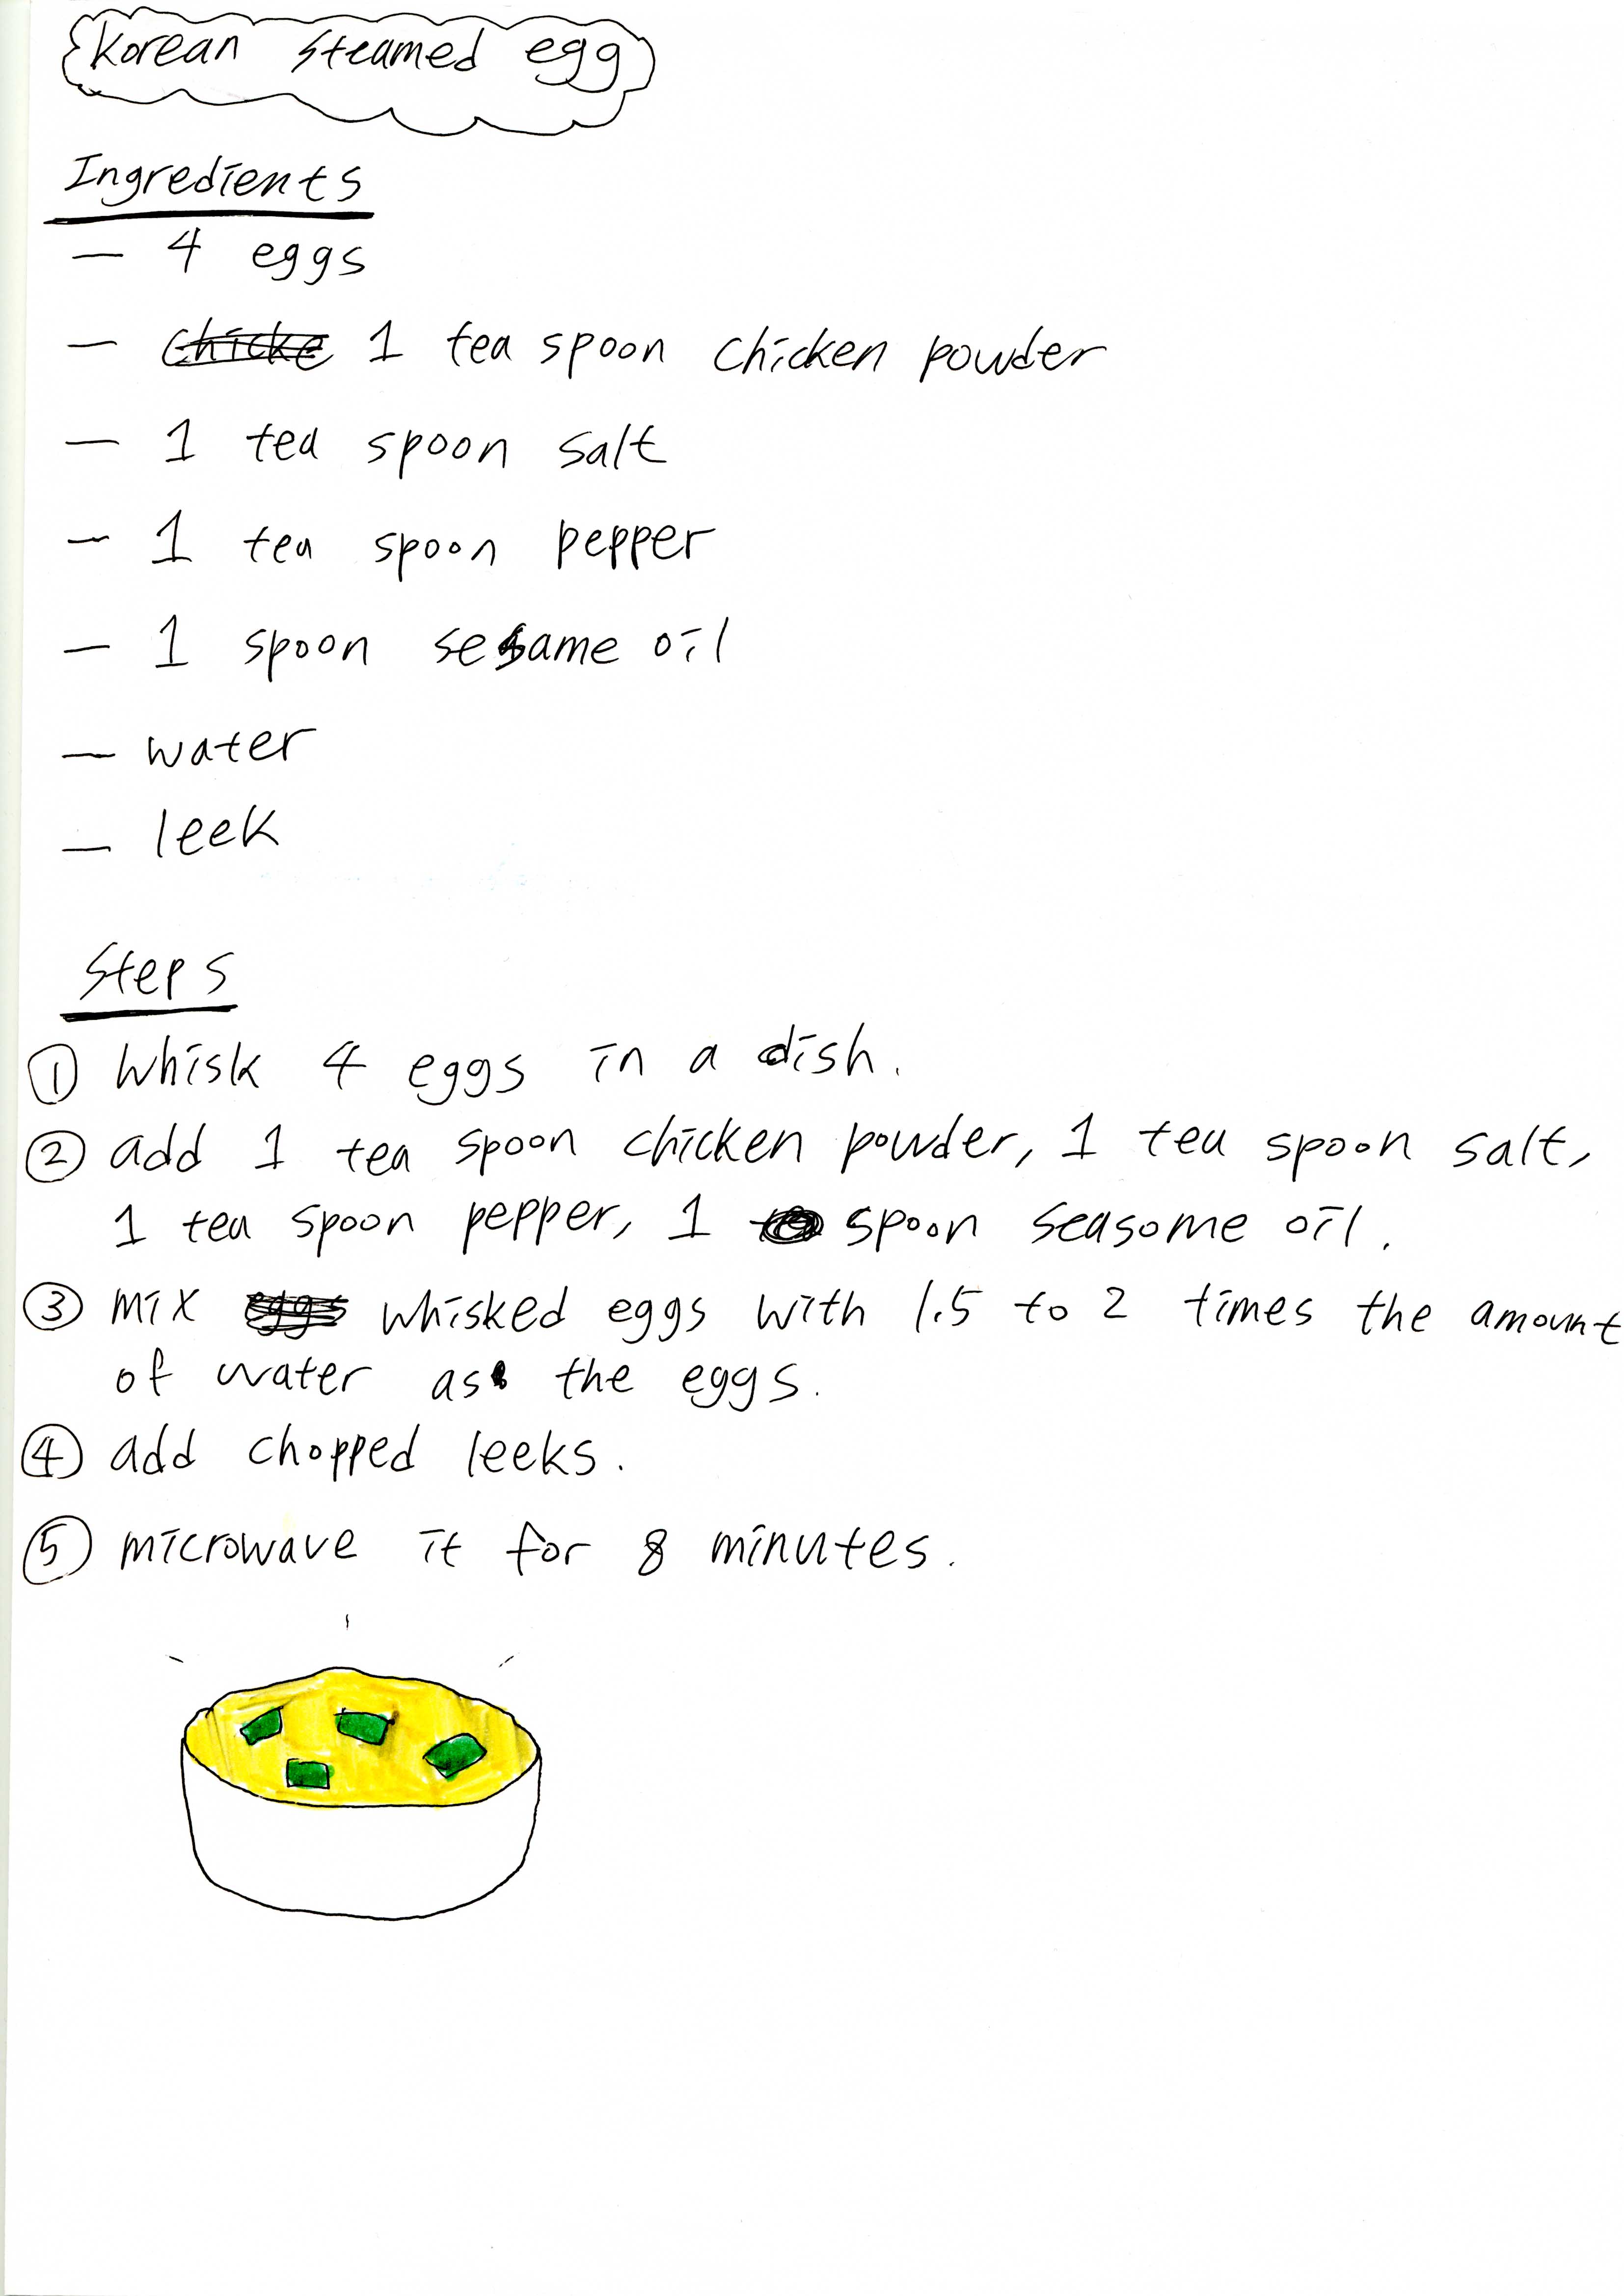 Korean steamed egg
Ingredients
— 4 eggs
— chicke 1 tea spoon chicken powder
— 1 tea spoon salt
— 1 tea spoon pepper
— 1 spoon sesame oil
— water
— leek
Steps
① Whisk 4 eggs in a dish.
② add 1 tea spoon chicken powder, 1 tea spoon salt,
1 tea spoon pepper, 1 spoon seasome oil.
③ mix eggs whisked eggs with 1.5 to 2 times the amount
of water as the eggs.
④ add chopped leeks.
⑤ microwave it for 8 minutes.